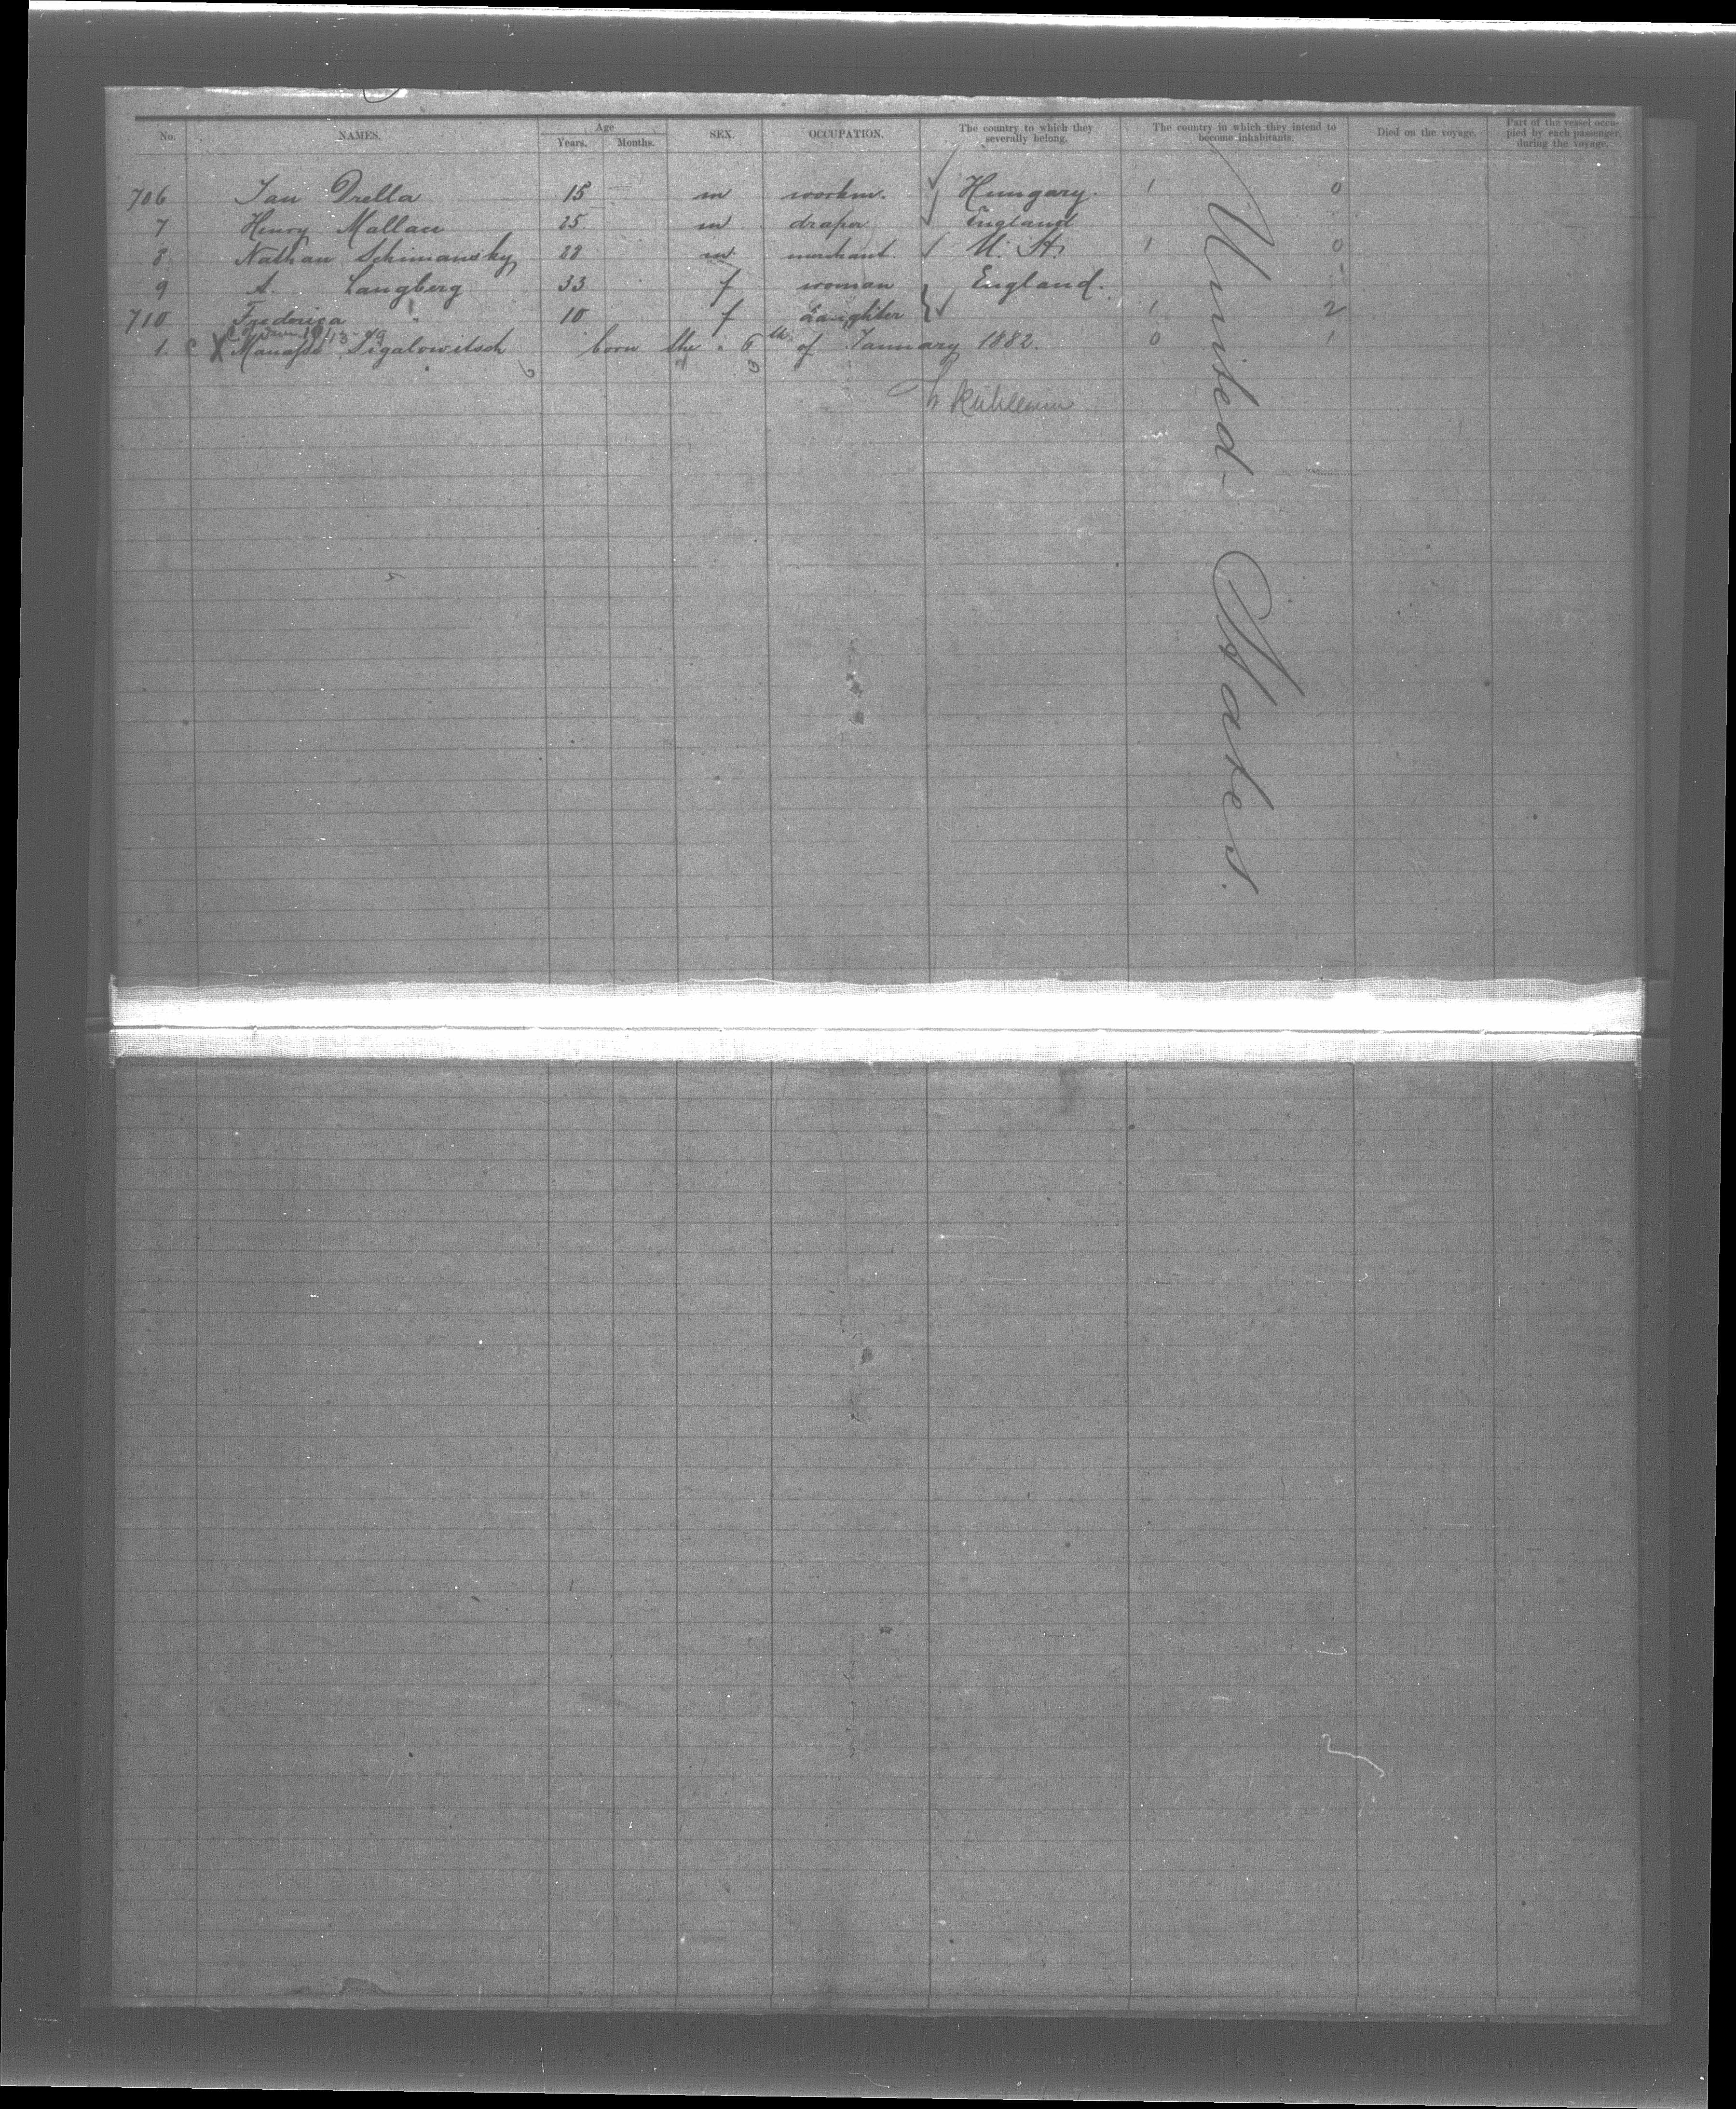 No. NAMES. Age Years. Months. SEX. OCCUPATION. The country to which they severally belong. The country in which they intend to become inhabitants. Died on the voyage. Part of the vessel occupied by each passenger during the voyage.
706 Jan Drella 15 m workm. Hungary. 1 0
7 Henry Mallau 25 m draper England
8 Nathan Schimansky 28 m merchant. U. St. 1 0
9 A. Langberg 33 f woman England.
710 Frederica " 10 f daughter 1 2
1. X Manasse Sigalowitsch born the 6th of January 1882. 0 1
United States.